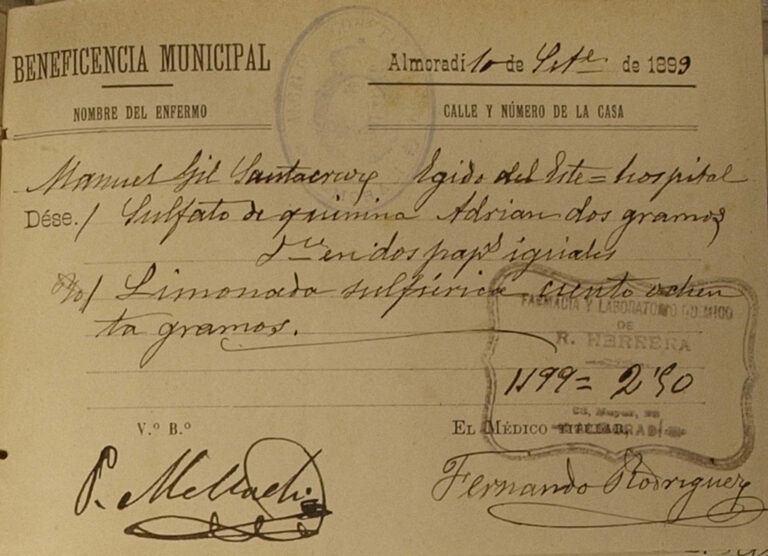 BENEFICENCIA MUNICIPAL
Almoradí 10 de Sete. de 1899
NOMBRE DEL ENFERMO
CALLE Y NÚMERO DE LA CASA
Manuel Gil Santacruz Egido del Este = hospital
Dése./ Sulfato de quinina Adrian dos gramos
en dos paps iguales
/ Limonada sulfúrica ciento ochen
ta gramos.
FARMACIA Y LABORATORIO QUIMICO
DE
R. HERRERA
1199 = 2'50
Mayor,
V.º B.º
EL MÉDICO TITULAR,
ALMORADÍ
P.
Fernando Rodriguez